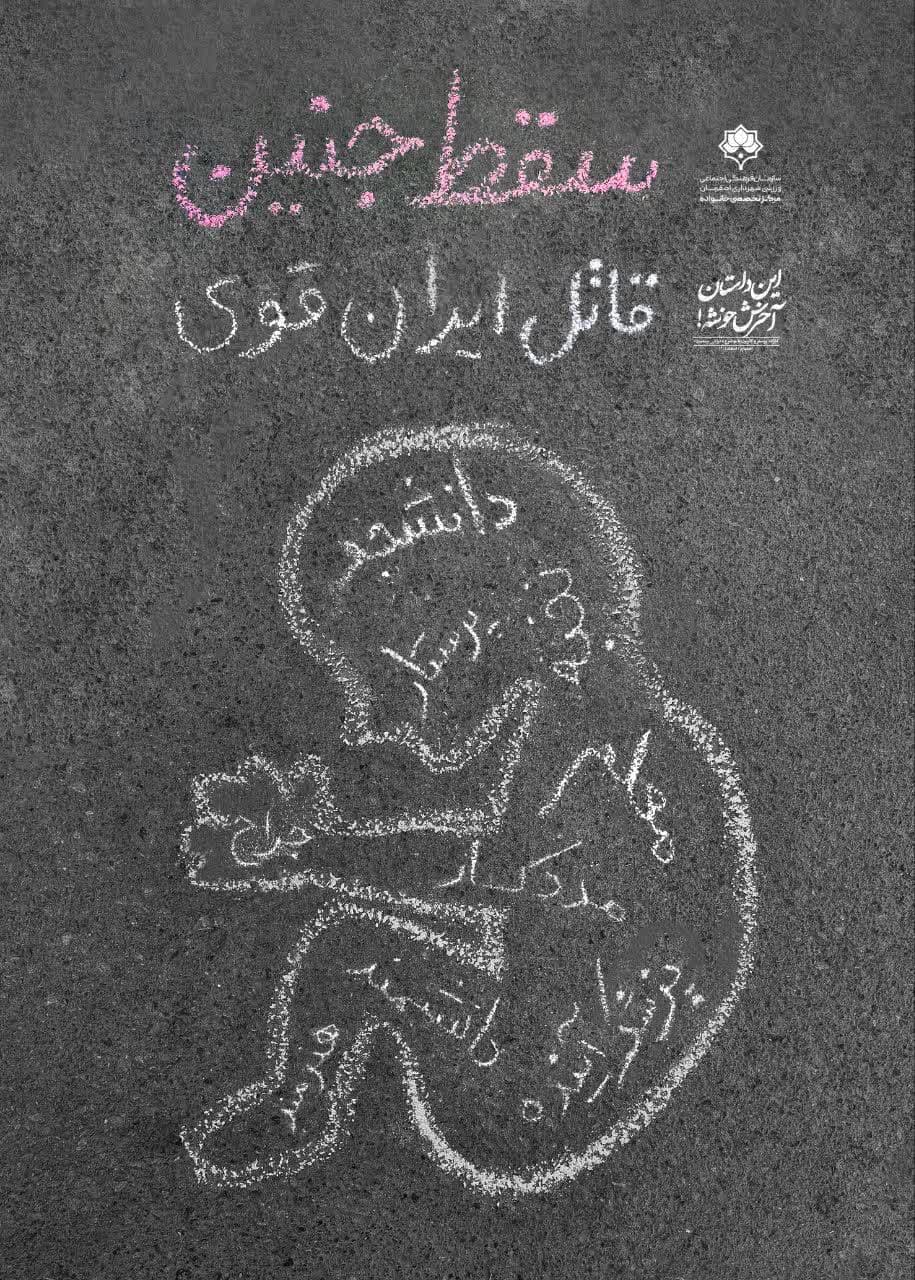 سقط جنین
قاتل ایران قوی
سازمان فرهنگی اجتماعی
و ورزشی شهرداری اصفهان
مرکز تخصصی خانواده
این داستان
آخرش خونشه!
دانشجو
پرستار
نخبه
معلم
جراح
مددکار
دانشمند
هنرمند